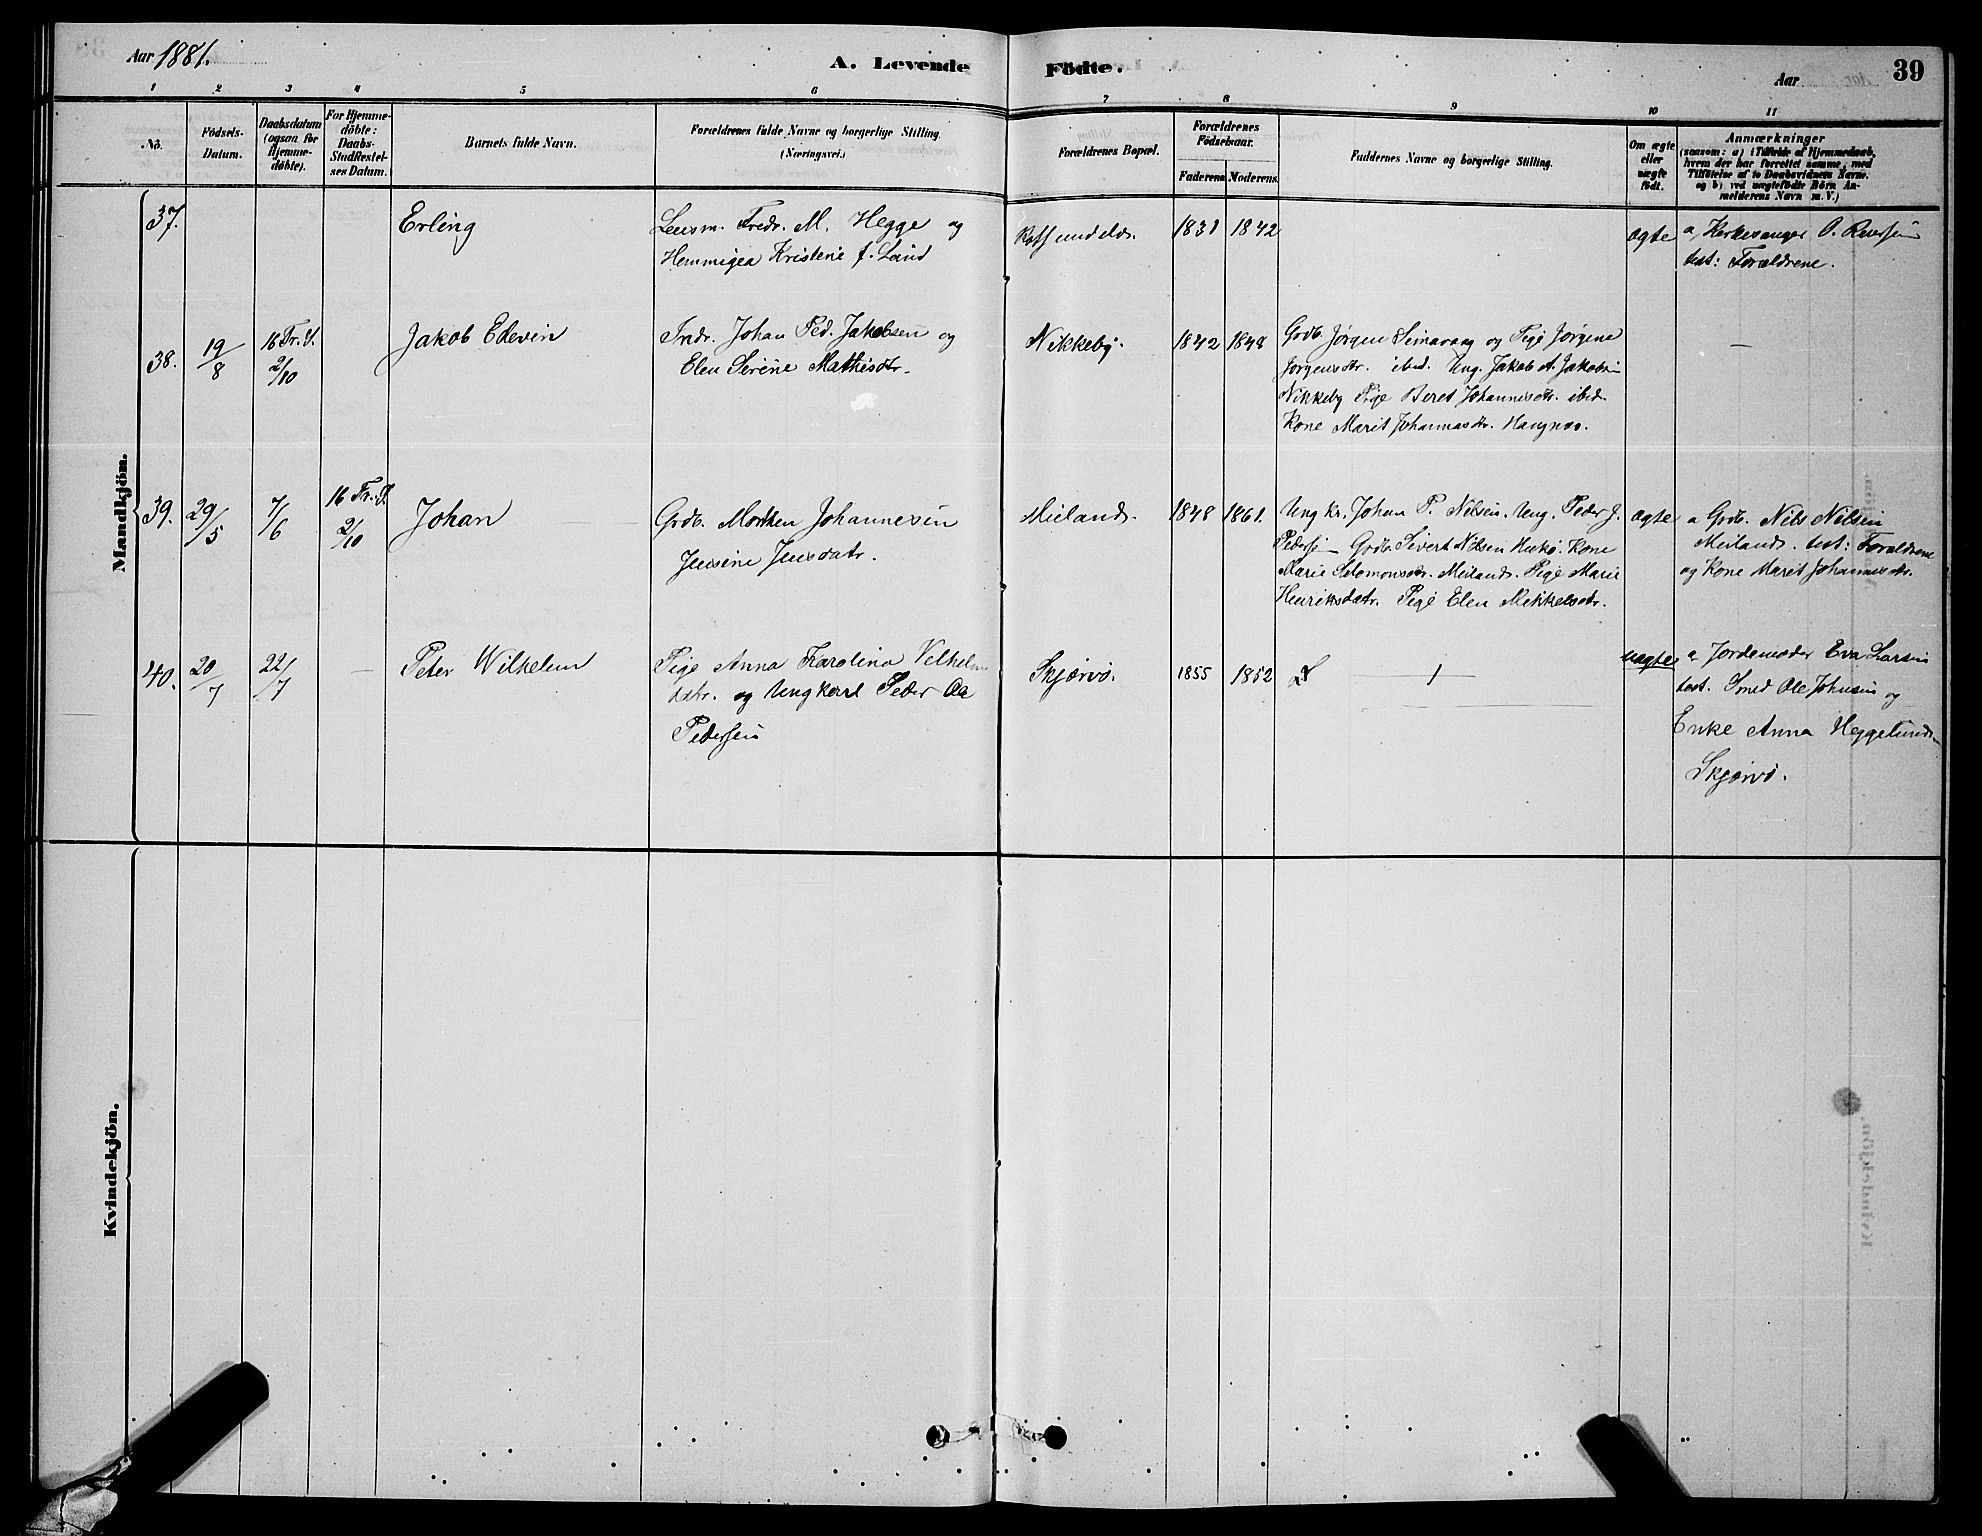 Aar 1881.
A. Levende Födte.
Aar
39
1 2 3 4 5 6 7 8 9 10 11
No.
Födsels-
Datum.
Daabsdatum
(ogsaa for
Hjemme-
døbte).
For Hjemme-
døbte:
Daabs-
Stadfæstel-
ses Datum.
Barnets fulde Navn.
Forældrenes fulde Navne og borgerlige Stilling.
(Næringsvei.)
Forældrenes Bopæl.
Forældrenes
Födselsaar.
Faderens Moderens
Faddernes Navne og borgerlige Stilling.
Om ægte
eller
uægte
födt.
Anmærkninger
(saasom: a) i Tilfælde af Hjemmedaab,
hvem der har forrettet samme, med
Tilföielse af to Daabsvidners Navne.
og b) ved uægtefödte Börn An-
melderens Navn m. V.)
Mandkjön.
37.
Erling
Lensm. Fredr. M. Hegge og
Kristine f. Lund
1831 1842
ægte
a, Kirkesanger O.
test: Forældrene.
38. 19/8
16 Tr. S.
2/10
Jakob Edevin
Indr. Johan Ped. Jakobsen og
Elen Sirine Mathisdtr.
Nikkeby.
1842 1848
Grdb. Jørgen og Pige Jørgine
Jørgensdtr. ibid. Ung. Jakob A. Jakobsen
Nikkeby Pige Beret Johannesdtr. ibid.
Kone Marit Johannasdtr. Haugnæs.
—
39. 29/5 7/6
16 Tr. S.
2/10
Johan
Grdb. Morten Johannesen
Jensine Jensdatr.
Meiland.
1848 1861.
Ung kr. Johan P. Nilsen. Ung. Peder J.
Pedersen Grdb. Sivert Nilsen Kone
Marie Salomonsdtr. Meiland. Pige Marie
Henriksdatr. Pige Elen Mikkelsdtr.
ægte
a Grdb. Nils Nilsen
Meiland. test: Forældrene
og Kone Marit Johannesdtr.
40. 20/7 22/7 —
Peter Wilhelm
Pige Anna Karolina Vilhelm
datr. og Ungkarl Peder Aa
Pedersen
Skjærvø.
1855 1852
uægte
a Jordemoder Eva Larsen
test. Smed Ole Johnsen og
Enke Anna Heggelund
Skjærvø.
Kvindekjön.